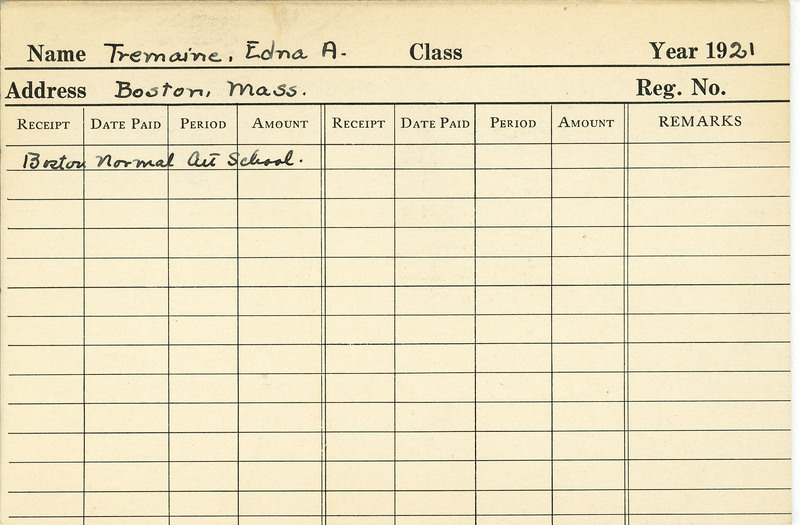 Name Tremaine, Edna A. Class Year 1921
Address Boston, Mass. Reg. No.
RECEIPT DATE PAID PERIOD AMOUNT RECEIPT DATE PAID PERIOD AMOUNT REMARKS
Boston Normal Art School.